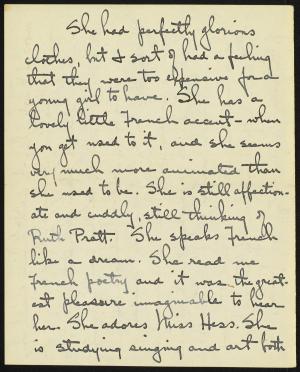 She had perfectly glorious
clothes, but I sort of had a feeling
that they were too expensive for a
young girl to have. She has a
lovely little French accent - when
you get used to it, and she seems
very much more animated than
she used to be. She is still affection-
ate and cuddly, still thinking of
Ruth Pratt. She speaks French
like a dream. She read me
French poetry and it was the great-
est pleasure imaginable to hear
her. She adores Miss Hess. She
is studying singing and art both